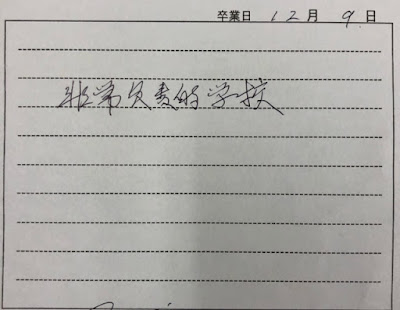 卒業日 12月 9.日
非常负责的学校